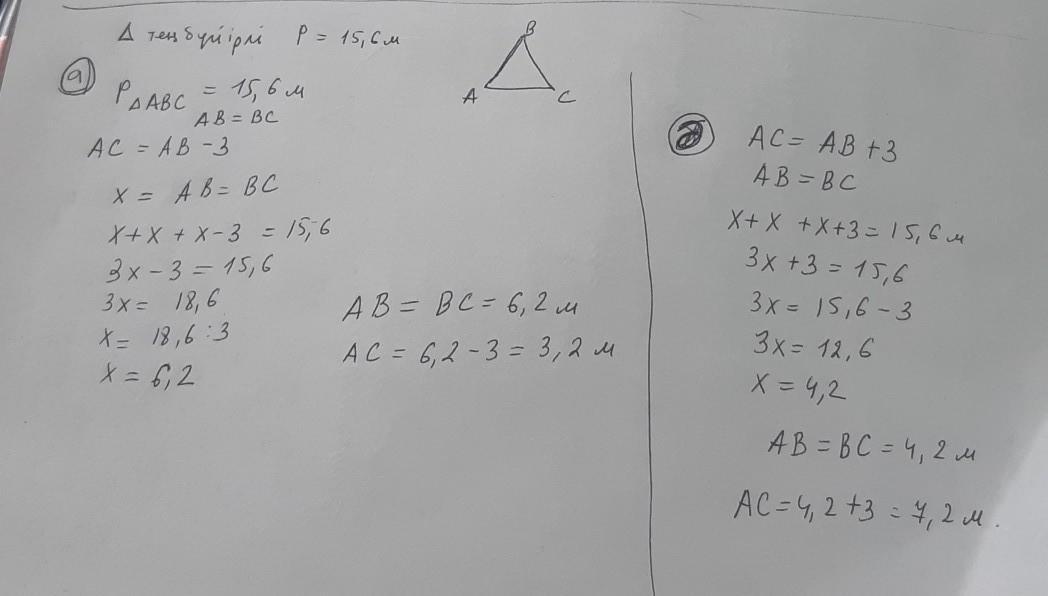 Δ теңбүйірлі P = 15,6м
B
A
C
а
P ΔABC = 15,6 м
AB = BC
AC = AB - 3
x = AB = BC
x + x + x - 3 = 15,6
3x - 3 = 15,6
3x = 18,6
x = 18,6 : 3
x = 6,2
AB = BC = 6,2 м
AC = 6,2 - 3 = 3,2 м
AC = AB + 3
AB = BC
x + x + x + 3 = 15,6 м
3x + 3 = 15,6
3x = 15,6 - 3
3x = 12,6
x = 4,2
AB = BC = 4,2 м
AC = 4,2 + 3 = 7,2 м.